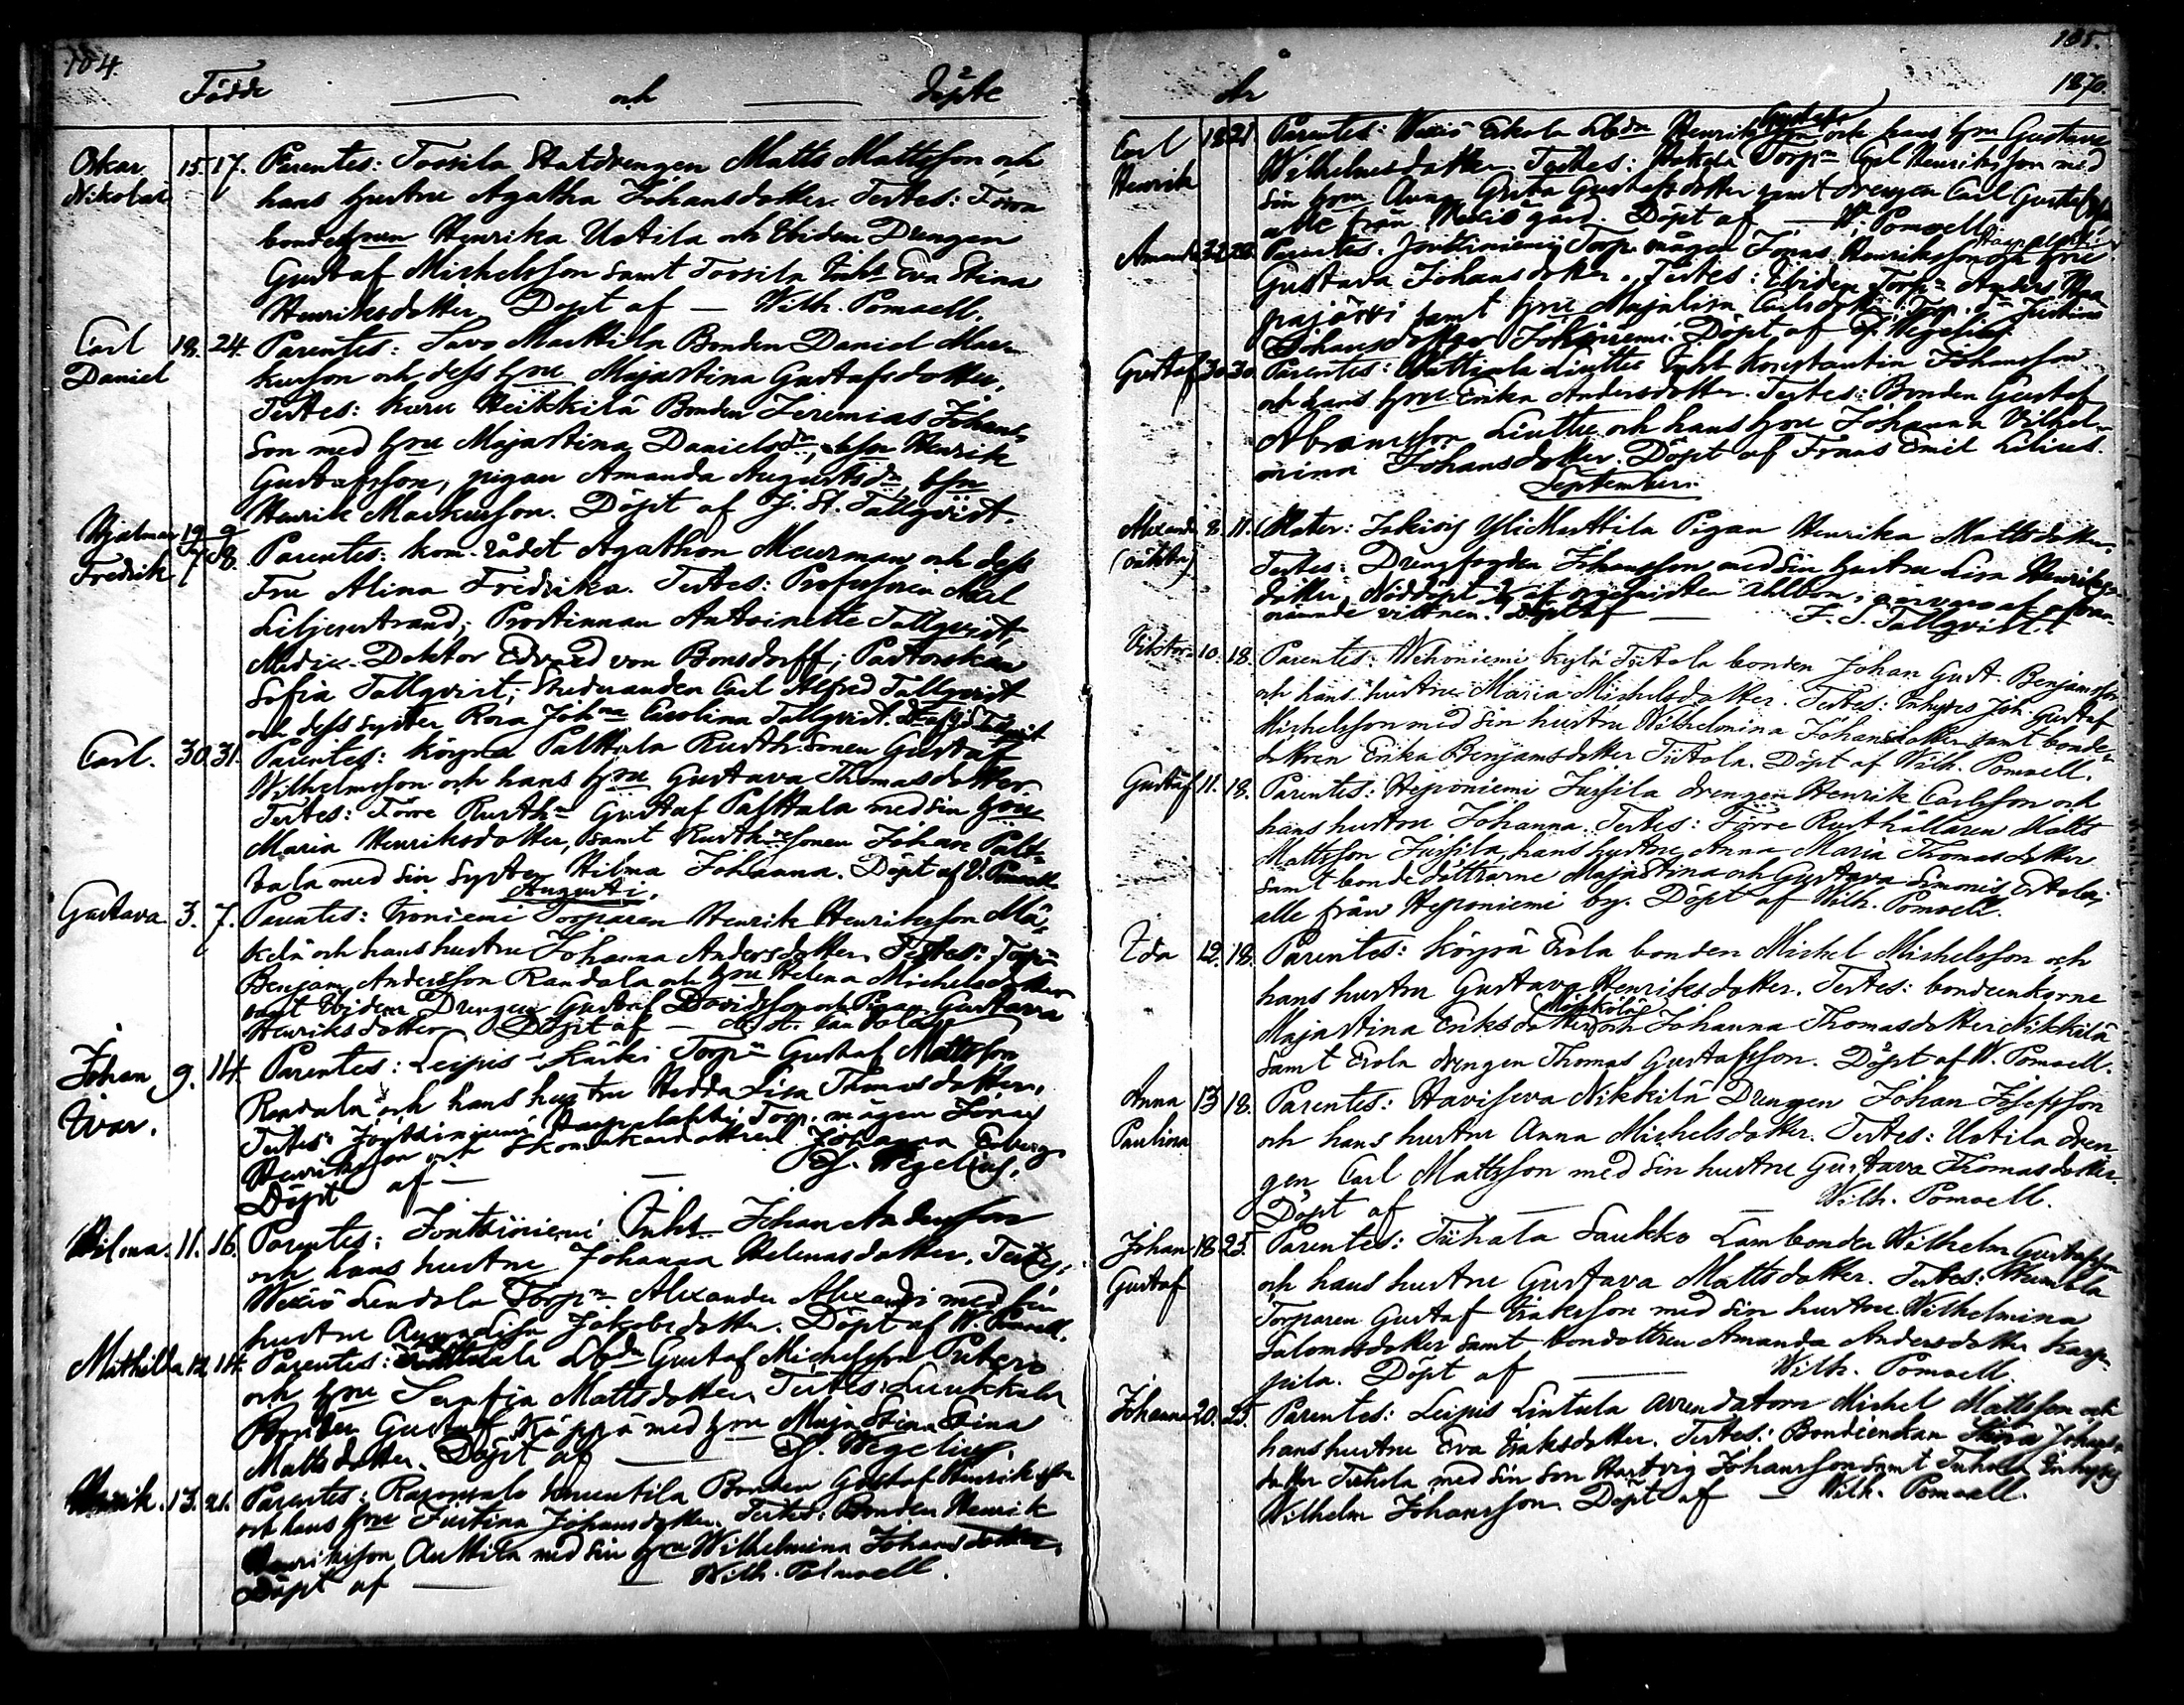 184.
Födde — och — döpte
Oskar Nikolai 15. 17. Parentes: Toosila Statdrengen Matts Mattsson och
hans hustru Agatha Johansdotter. Testes: Förra
bondehrun Henrika Uotila och Ibidem Drengen
Gustaf Michelsson samt Toosila Inhs Eva Stina
Henriksdotter. Döpt af — Wilh. Pomoell.
Carl Daniel 18. 24. Parentes: Savo Marttila Bonden Daniel Mar-
kusson och dess hru Majastina Gustafsdotter,
Testes: Heikkilä Bonden Jeremias Johans-
son med hru Majastina Danielsdr, bsn Henrik
Gustafsson, pigan Amanda Augustsdr, bsn
Henrik Markusson. Döpt af F. St. Tallqvist.
Hjalmar Fredrik 19/7 9/8 Parentes: Kom-rådet Agathon Meurman och dess
Fru Alina Fredrika. Testes: Professorn Axel
Liljenstrand; Prostinnan Antoinette Tallqvist,
Medic. Doktor Edvard von Bonsdorff; Pastorskan
Sofia Tallqvist; Studeranden Carl Alfred Tallqvist
och dess syster Rosa Johna Carolina Tallqvist.
Carl. 30. 31. Parentes: Köyrä Palttala Rusth. Sonen Gustaf
Wilhelmsson och hans hru Gustava Thomasdotter.
Testes: Förre Rusthn Gustaf Palttala med sin hru
Maria Henriksdotter, samt Rusthnesonen Johan Palt-
tala med sin syster Hilma Johanna. Döpt af W. Pomoell
Augusti.
Gustava 3. 7. Parentes: Isoniemi Torparen Henrik Henriksson Mä-
kelä och hans hustru Johanna Andersdotter. Testes: Torpn
Benjam. Andersson Randala och hru Helena Michelsdotter
samt Ibidem Drengen Gustaf Davidsson och Pigan Gustava
Henriksdotter. Döpt af —
Johan Ivar. 9. 14. Parentes: Leipis Kärki Torpn Gustaf Mattsson
Randala och hans hustru Hedda Lisa Thomasdotter,
Testes: Jouttiniemi Haapalahti Torp. mågen Jonas
Henriksson och Skomakaredottren Johanna Enberg
Döpt af — — Wegelius.
Wilma. 11. 16. Parentes: Jouttiniemi Inhs Johan Andersson
och hans hustru Johanna Helenasdotter. Testes:
Wexiö Lendola Torpn Alexander Alexandri med sin
hustru Annalisa Jakobsdotter. Döpt af W. Pomoell.
Mathilda 12. 14. Parentes: Lbdn Gustaf Michelsson
och hru Serafia Mattsdotter, Testes: Liuttala
Bonden Gustaf Käppä med hru Majastina Stina
Mattsdotter. Döpt af — Wegelius.
Henrik. 13. 21. Parentes: Bonden Gustaf Henriksson
och hans hru Justina Johansdotter. Testes: Bonden Henrik
Henriksson Anttila med sin hru Wilhelmina Johansdotter.
Döpt af — — Wilh. Pomoell.
185.
år 1870.
Carl Henrik 18 21 Parentes: Wexiö Erkola Lbdn Henrik Gustafsson och hans hru Gustava
Wilhelmsdotter. Testes: Torpn Carl Henriksson med
sin hru Anna Greta Gustafsdotter samt drengen Carl Gustafsson
alle från Wexiö gård. Döpt af — W. Pomoell.
Amanda 22 28. Parentes: Jouttiniemi Torp. mågen Jonas Henriksson Haapalahti och hru
Gustava Johansdotter. Testes: Ibidem Torpn Anders Haa
pajärvi samt hru Majalisa Carlsdotter, Torp. dr Justina
Johansdotter Jokiniemi. Döpt af Wegelius.
Gustaf 30 30. Parentes: Liuttu Inhs Konstantin Johansson
och hans hru Erika Andersdotter. Testes: Bonden Gustaf
Abramsson Liuttu och hans hru Johanna Vilhel-
mina Johansdotter. Döpt af Frans Emil Lilius.
September.
Alexander (oäkta) 8. 11. Mater: Jokisivu YliMarttila Pigan Henrika Mattsdotter.
Testes: Drengfogden Johansson med sin hustru Lisa Henriks-
dotter, Nöddöpt af organisten Ahlbom, i närvaro af ofvan-
nämnde vittnen. Döpt af — F. S. Tallqvist.
Viktor. 10. 18. Parentes: Wehoniemi Kylä Tiitola bonden Johan Gust. Benjamsson
och hans hustru Maria Michelsdotter. Testes: Inhyses Joh. Gustaf
Michelsson med sin hustru Wilhelmina Johansdotter samt bonde-
dottren Erika Benjamsdotter Tiitola. Döpt af Wilh. Pomoell.
Gustaf 11. 18. Parentes: Heponiemi Jussila drengen Henrik Carlsson och
hans hustru Johanna. Testes: Förre Rusthållaren Matts
Mattsson Jussila, hans hustru Anna Maria Thomasdotter
samt bondedöttrarne Majastina och Gustava Simonis Ertola,
alle från Heponiemi by. Döpt af Wilh. Pomoell.
Ida 12. 18. Parentes: Köyrä Erola bonden Michel Michelsson och
hans hustru Gustava Henriksdotter. Testes: bondeenkorne
Majastina Eriksdotter Mikkola och Johanna Thomasdotter Nikkilä
samt Erola drengen Thomas Gustafsson. Döpt af W. Pomoell.
Anna Paulina 13 18. Parentes: Haviseva Nikkilä Drengen Johan Josefsson
och hans hustru Anna Michelsdotter. Testes: Uotila dren
gen Carl Mattsson med sin hustru Gustava Thomasdotter.
Döpt af — — Wilh. Pomoell.
Johan Gustaf 18 25. Parentes: Tiihala Saukko Lambonden Wilhelm Gustafsson
och hans hustru Gustava Mattsdotter. Testes:
Torparen Gustaf Isaksson med sin hustru Wilhelmina
Salomonsdotter samt bondottren Amanda Andersdotter Karp-
pila. Döpt af — Wilh. Pomoell.
Johanna 20. 25. Parentes: Leipis Lintula arrendatorn Michel Mattsson och
hans hustru Eva Isaksdotter. Testes: Bondeenkan Stina Johans-
dotter Tiihala med sin son Hartvig Johansson samt Tiihala Inhyses
Wilhelm Johansson. Döpt af — Wilh. Pomoell.